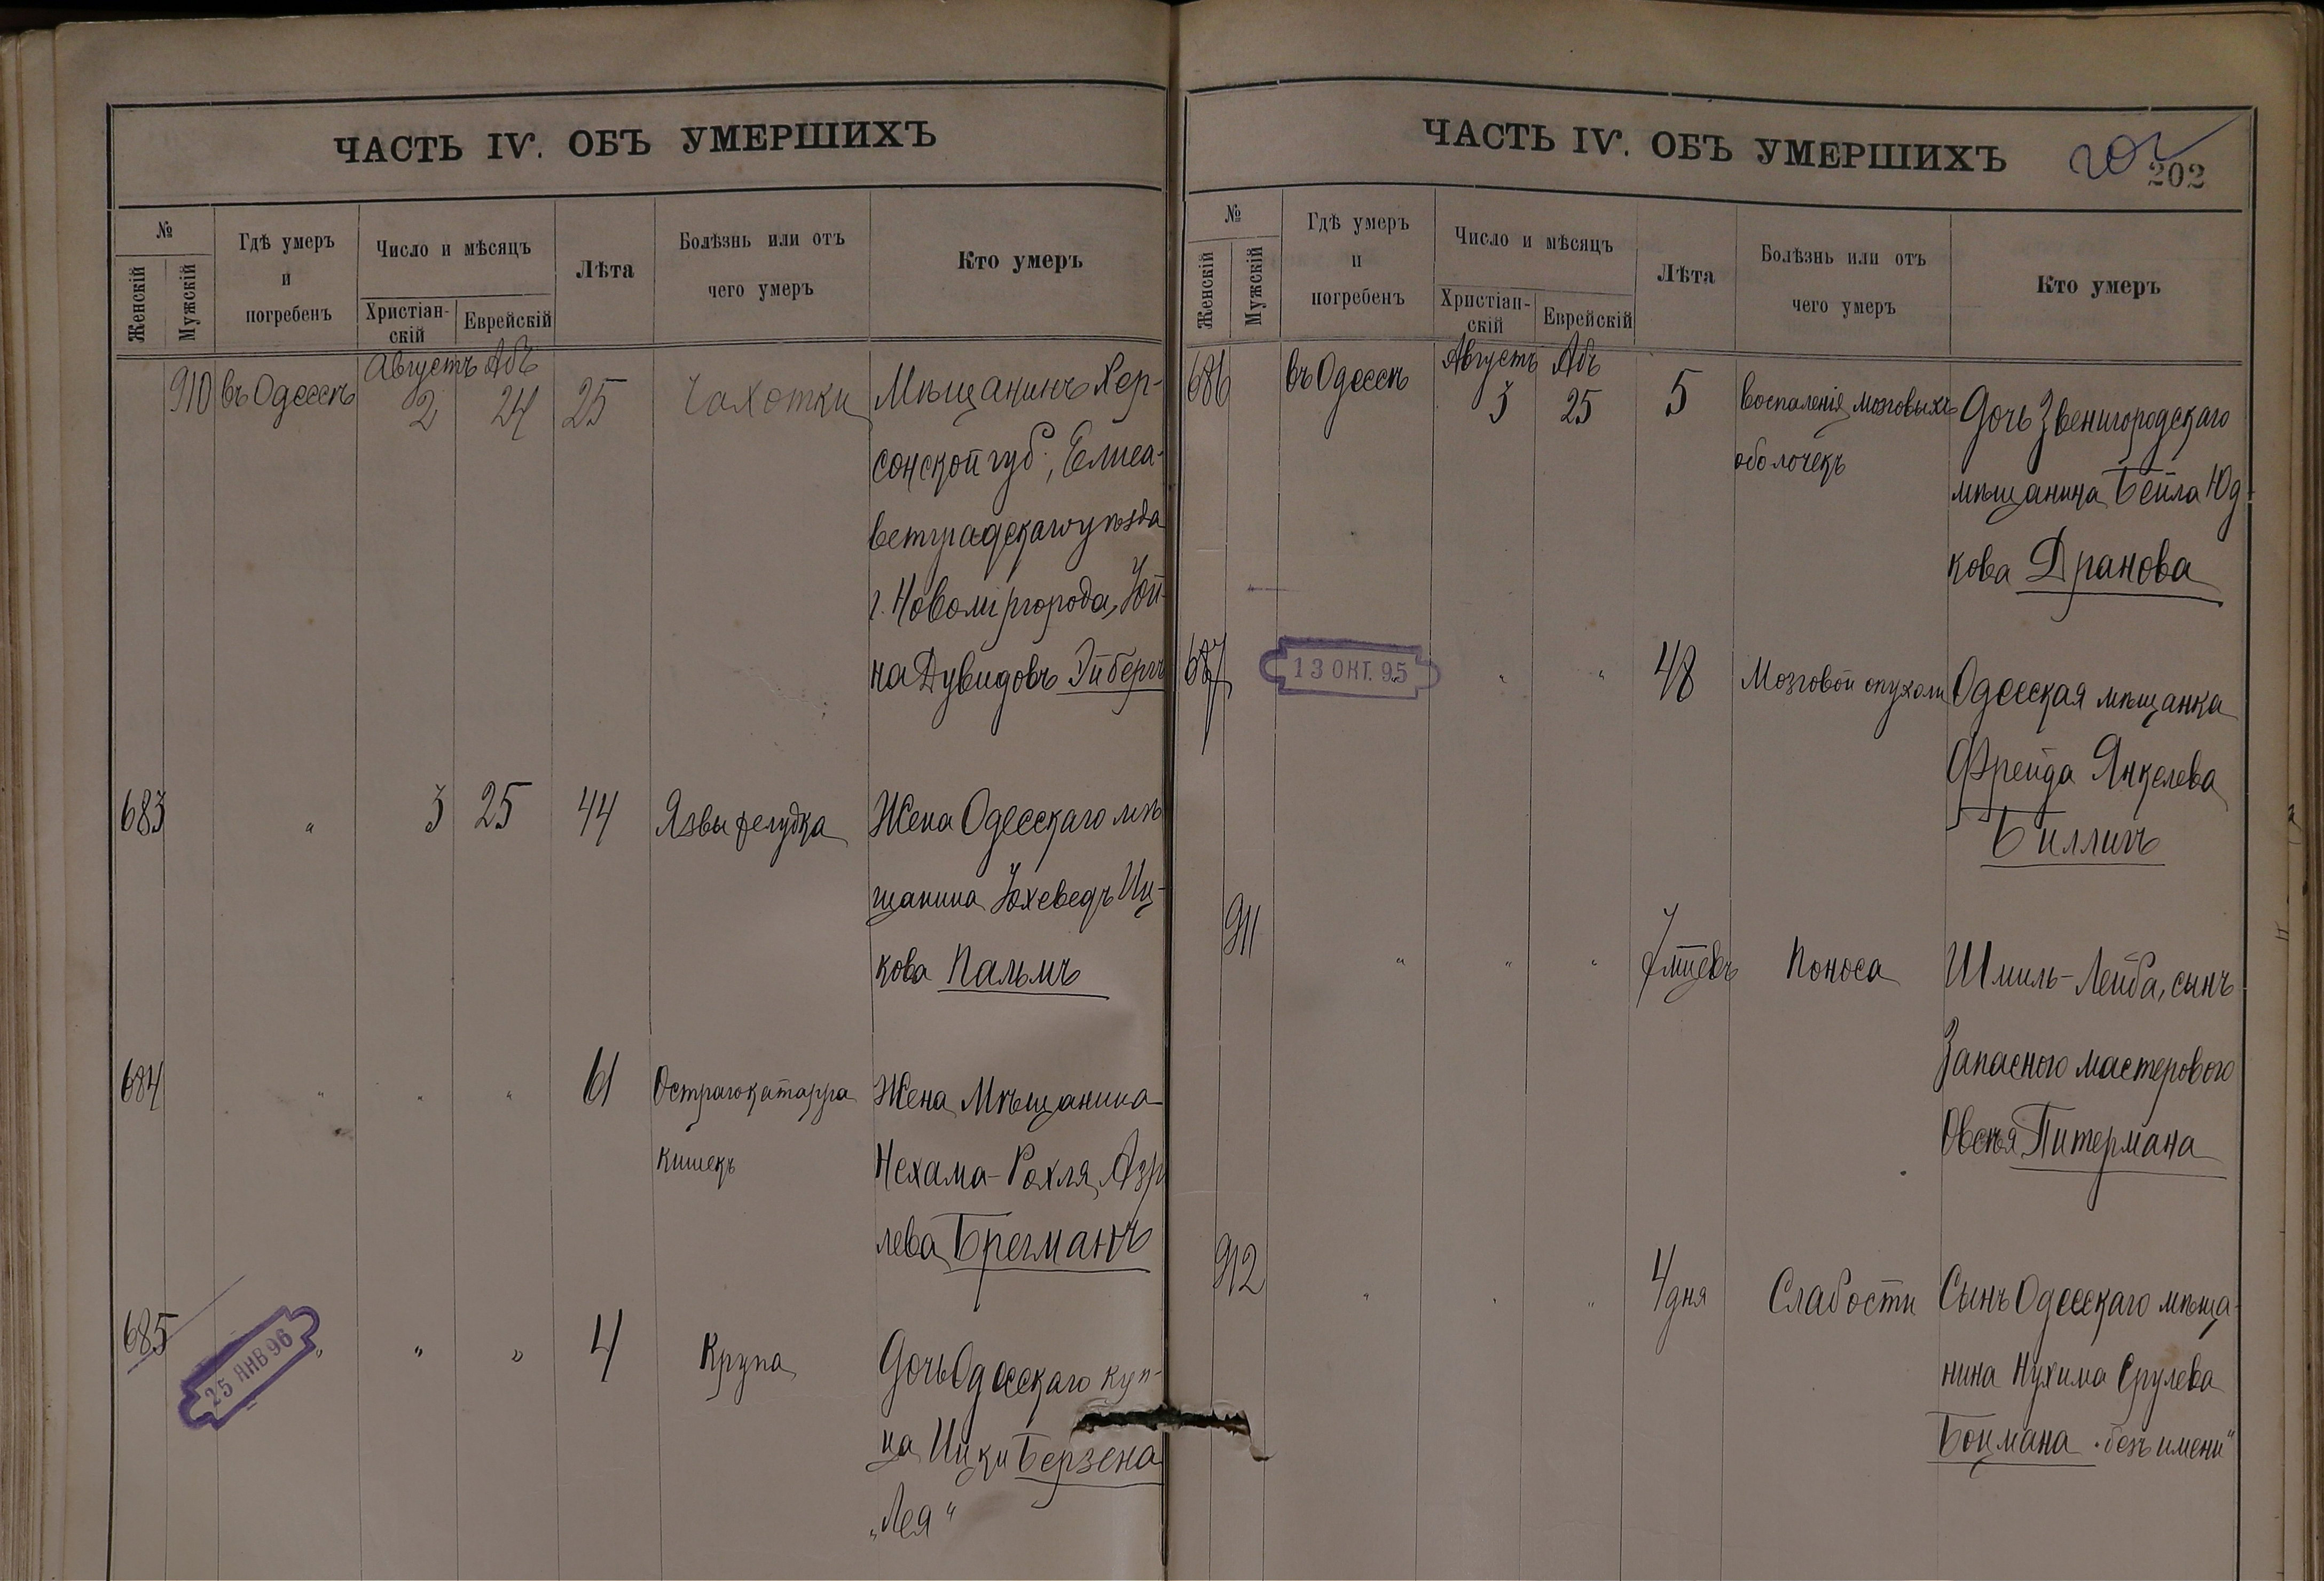 ЧАСТЬ IV. ОБЪ УМЕРШИХЪ
№
Женскій
Мужскій
Гдѣ умеръ
и
погребенъ
Число и мѣсяцъ
Христіан-
скій
Еврейскій
Лѣта
Болѣзнь или отъ
чего умеръ
Кто умеръ
Августъ Абъ
910 въ Одессѣ 2 24 25 Чахотки Мѣщанинъ Хер-
сонской губ., Елиса-
ветградскаго уѣзда
г. Новомиргорода, Іой-
на Дувидовъ Эйбергъ
683 " 3 25 44 Язвы желудка Жена Одесскаго мѣ
щанина Іохеведъ Иц-
кова Пальмъ
684 " " " 61 Остраго катарра Жена Мѣщанина
кишекъ
Нехама-Рохля Азрі
лева Брегманъ
685 " " " 4 Крупа Дочь Одесскаго куп-
ца Ицки Берзена
„Лея“
25 ЯНВ 96
ЧАСТЬ IV. ОБЪ УМЕРШИХЪ
202
202
№
Женскій
Мужскій
Гдѣ умеръ
и
погребенъ
Число и мѣсяцъ
Христіан-
скій
Еврейскій
Лѣта
Болѣзнь или отъ
чего умеръ
Кто умеръ
Августъ Абъ
686 въ Одессѣ 3 25 5 Воспаленія мозговыхъ Дочь Звенигородскаго
оболочекъ
мѣщанина Бейла Юд-
кова Дранова
687 " " 48 Мозговой опухоли Одесская мѣщанка
13 ОКТ. 95
Фрейда Янкелева
Биллинъ
911 " " " 7 мцевъ Поноса Шмиль-Лейба, сынъ
Запасного мастерового
Овсѣя Питермана
912 " " " 4 дня Слабости Сынъ Одесскаго мѣща-
нина Нухима Срулева
Боцмана „безъ имени“